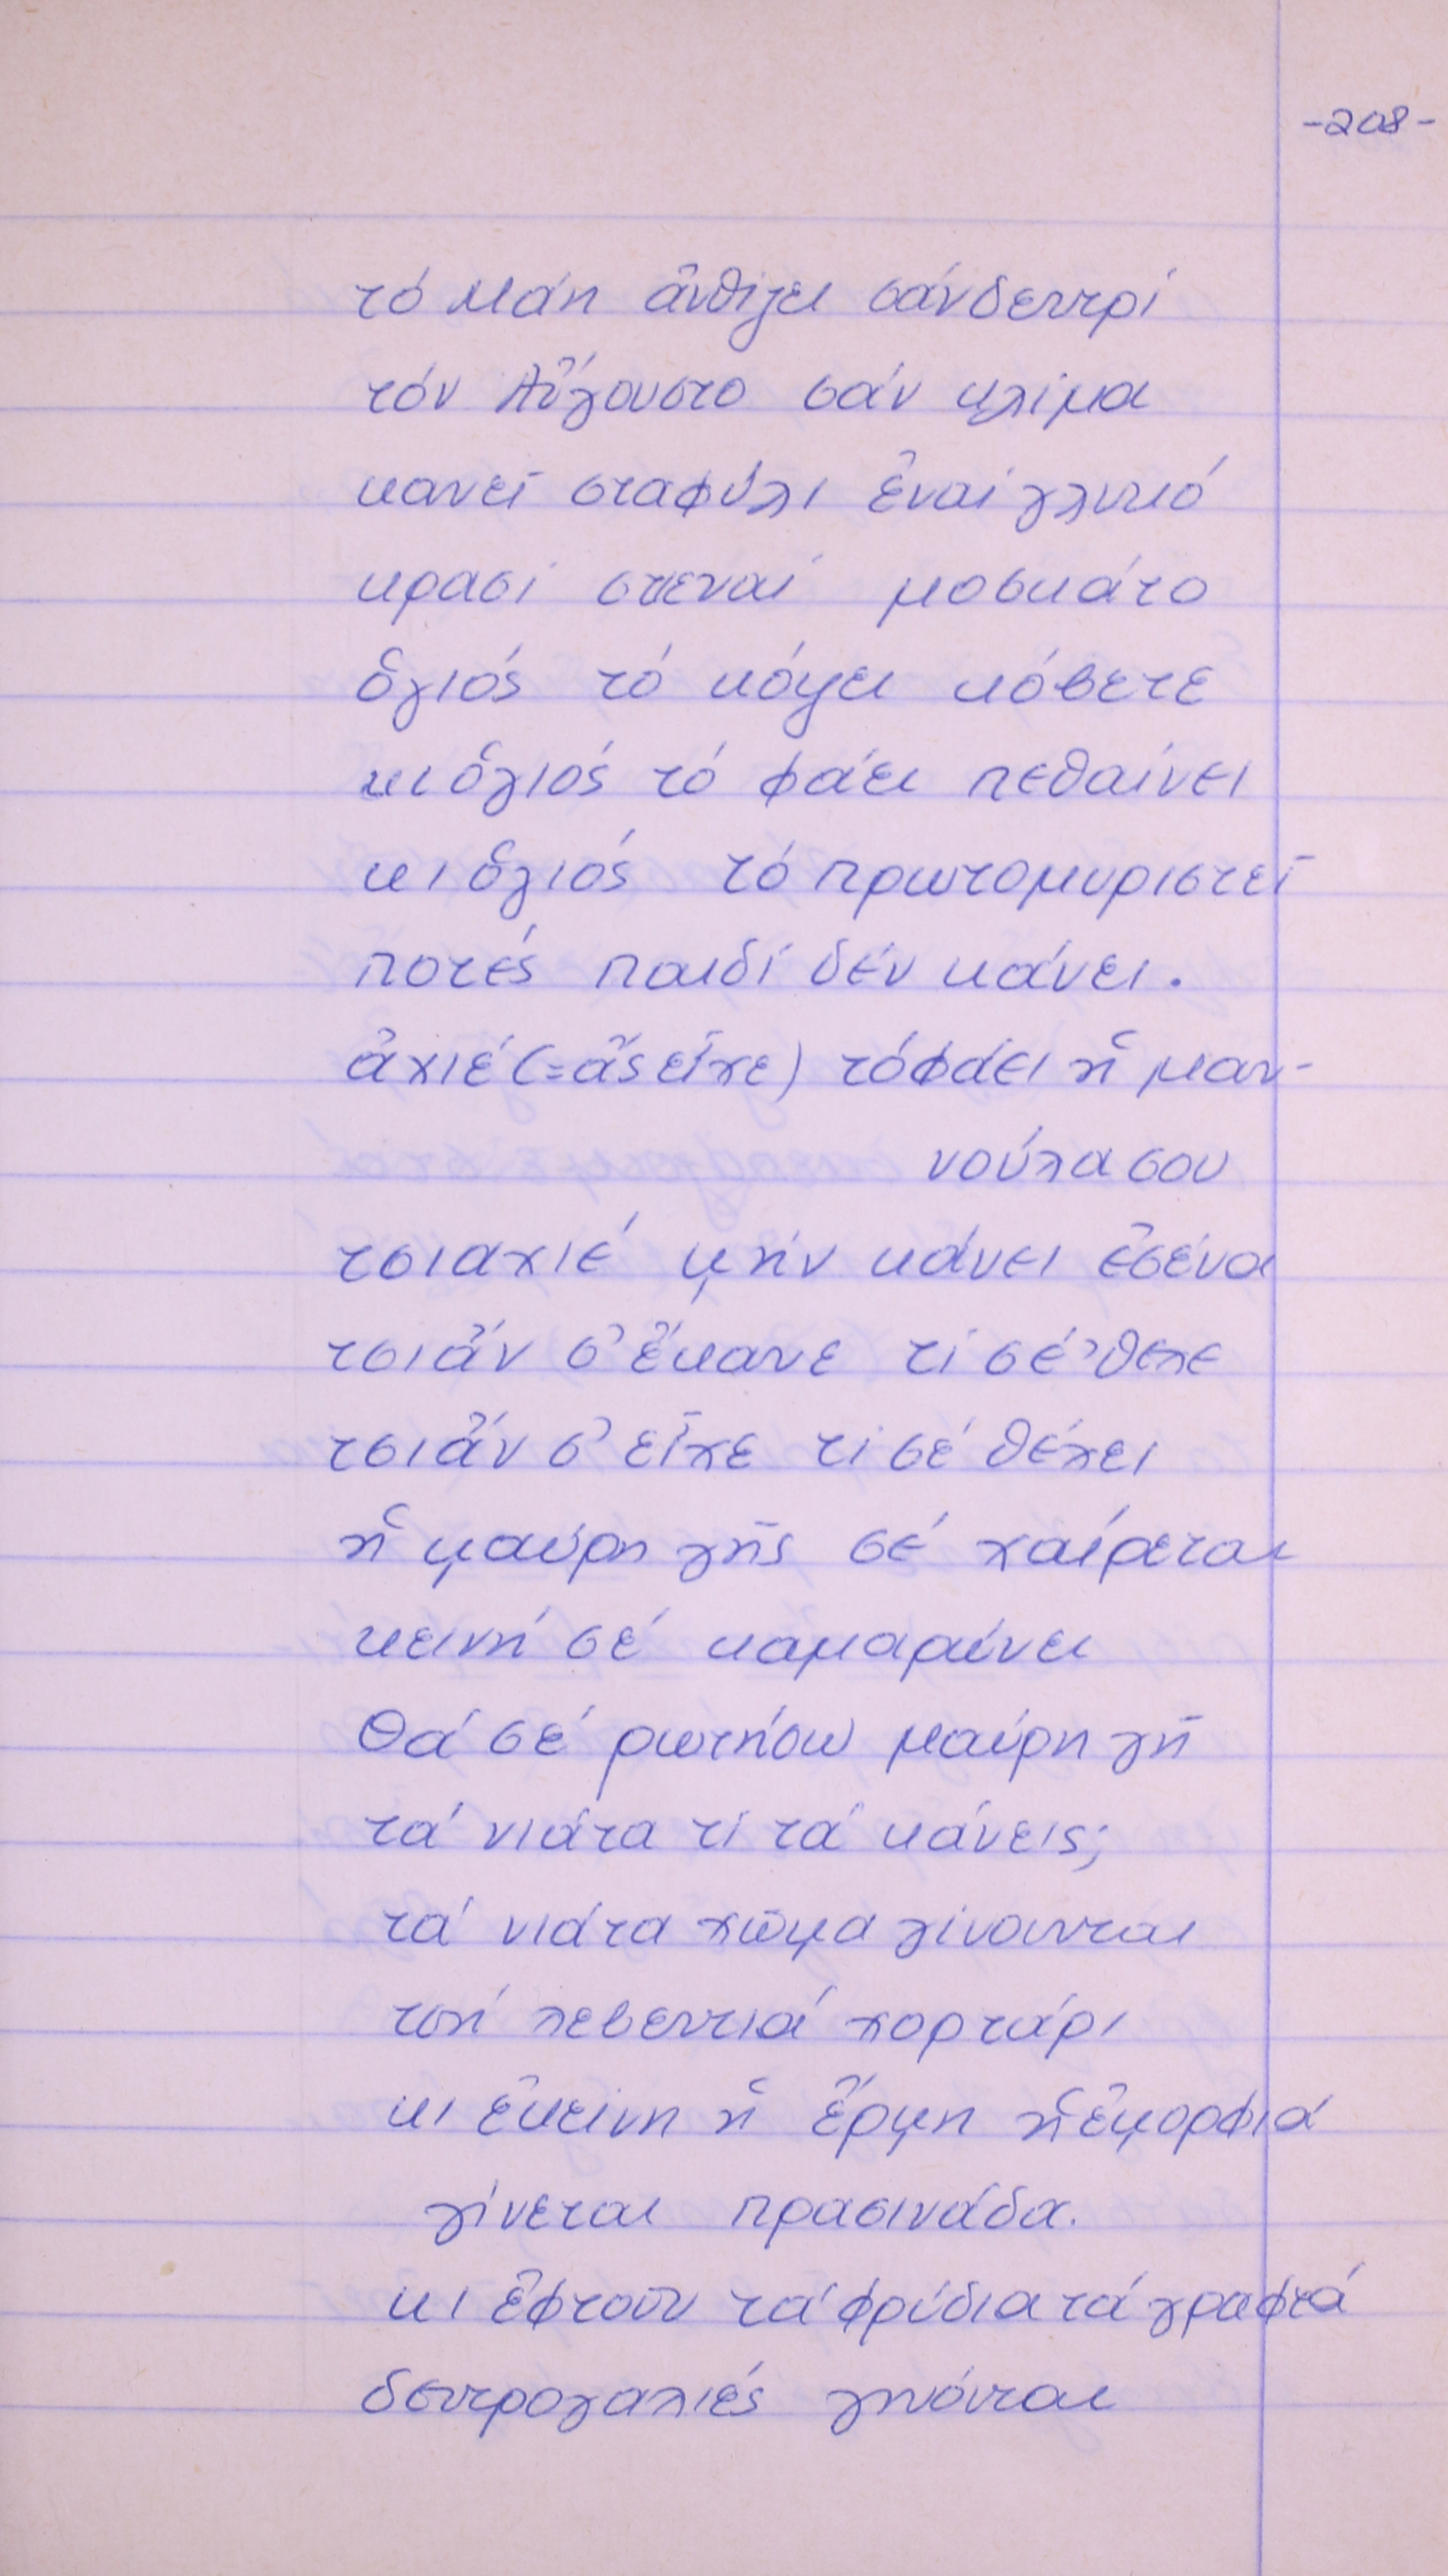 -208-
τό Μάη ἀνθίζει σάν δεντρί
τόν Αὔγουστο σάν κλίμα
κανεῖ σταφύλι ἐναί γλυκό
κρασί στεναί μοσκάτο
ὁγιός τό κόψει κόβετε
κι ὁγιός τό φάει πεθαίνει
κι ὁγιός τό πρωτομυριστεῖ
ποτές παιδί δέν κάνει.
ἀχιέ (=ἄς εἶχε) τόφάει ἡ μαν-
νούλα σου
τσιαχιέ μήν κάνει ἐσένα
τσιἄν σ' ἔκανε τί σέ 'θελε
τσιἄν σ' εἶχε τί σέ θέλει
ἡ μαύρη γῆς σέ χαίρεται
κεινή σέ καμαρώνει
Θά σέ ρωτήσω μαύρη γῆ
τά νιάτα τί τά κάνεις;
τά νιάτα χῶμα γίνουνται
τσή λεβεντιά χορτάρι
κι ἐκείνη ἡ ἔρμη ἡ ἐμορφιά
γίνεται πρασινάδα.
κι ἐφτοῦν τά φρύδια τά γραφτά
δεντρογαλιές γηνόνται